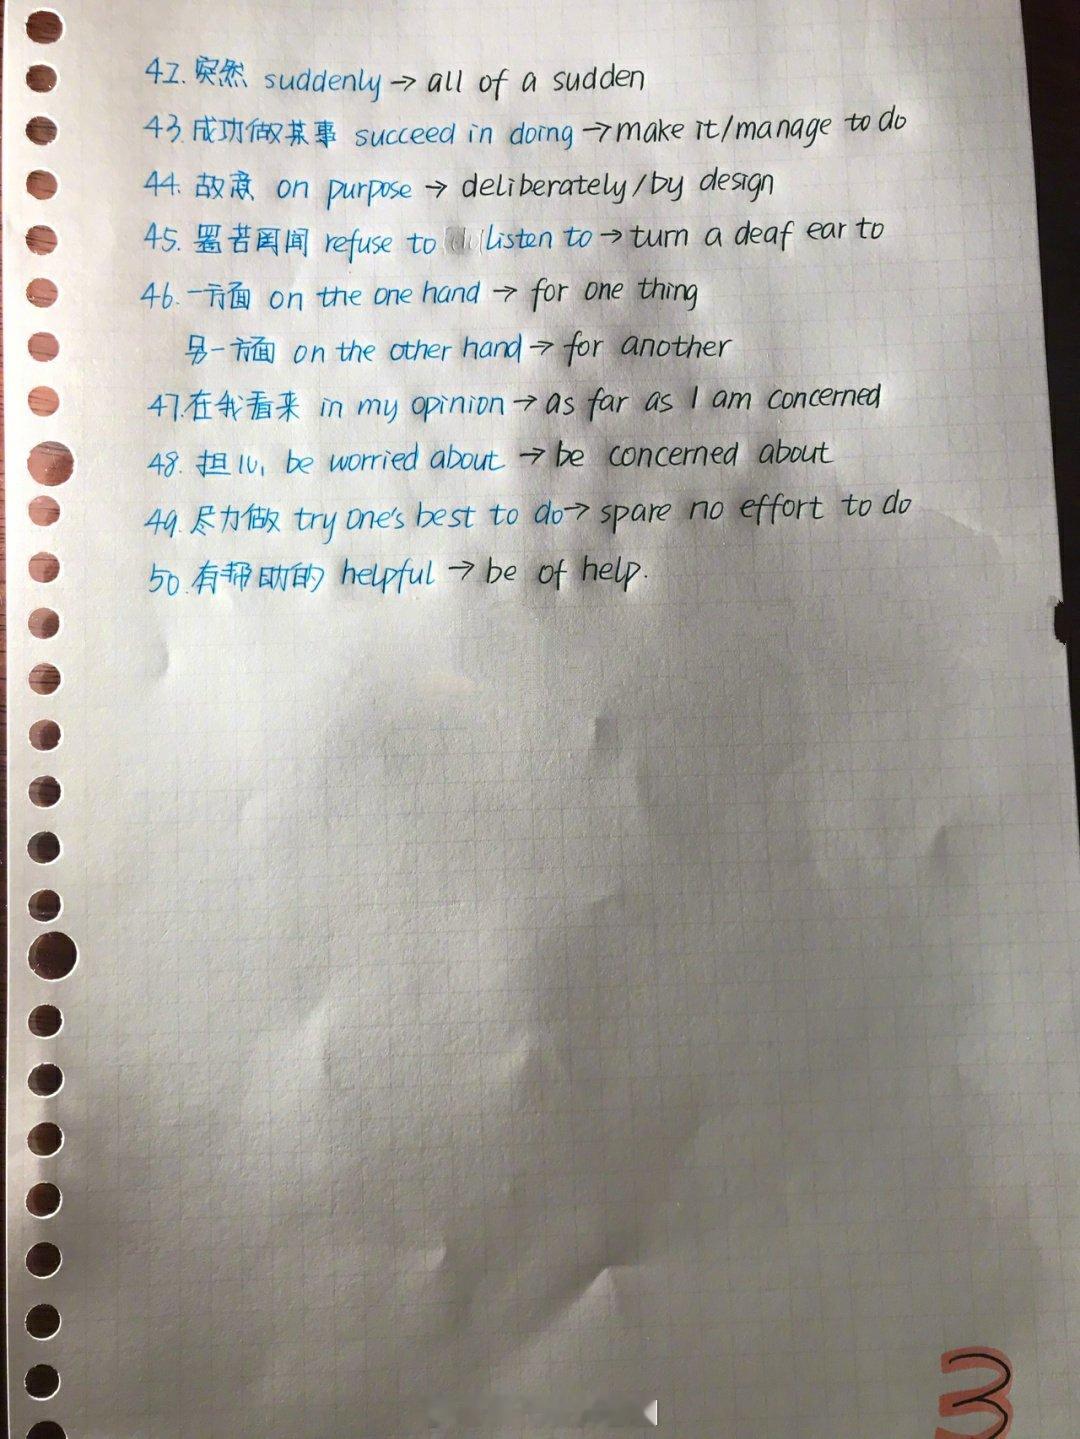 42. 突然 suddenly → all of a sudden
43. 成功做某事 succeed in doing → make it/manage to do
44. 故意 on purpose → deliberately/by design
45. 置若罔闻 refuse to listen to → turn a deaf ear to
46. 一方面 on the one hand → for one thing
另一方面 on the other hand → for another
47. 在我看来 in my opinion → as far as I am concerned
48. 担心 be worried about → be concerned about
49. 尽力做 try one's best to do → spare no effort to do
50. 有帮助的 helpful → be of help.
3